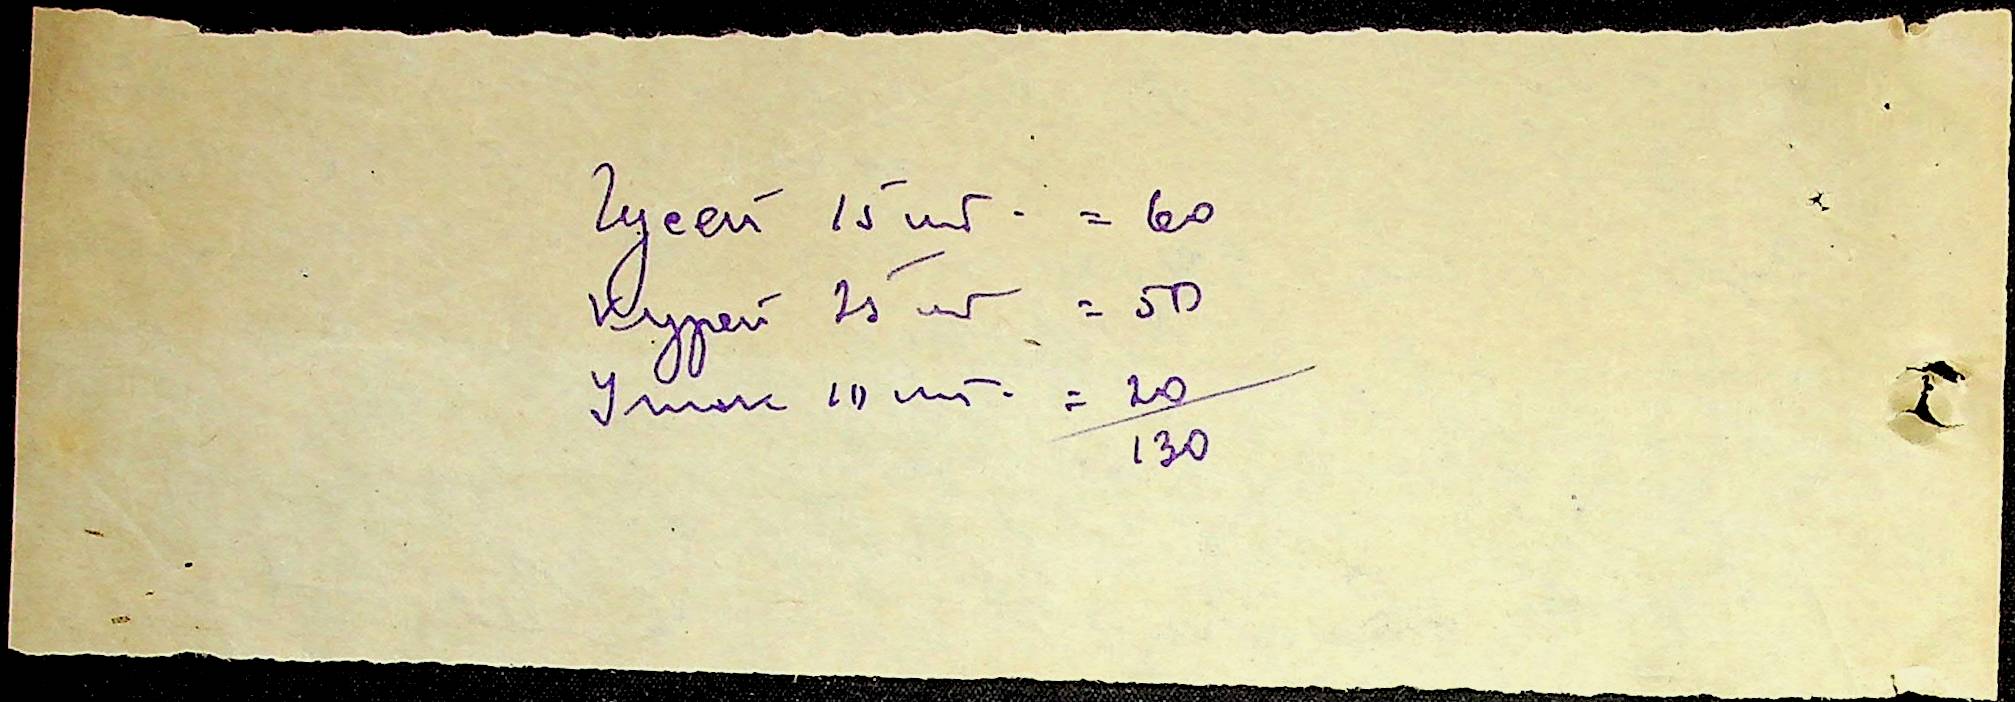 Гусей 15 шт. = 60
Курей 25 шт = 50
Уток 10 шт. = 20
130